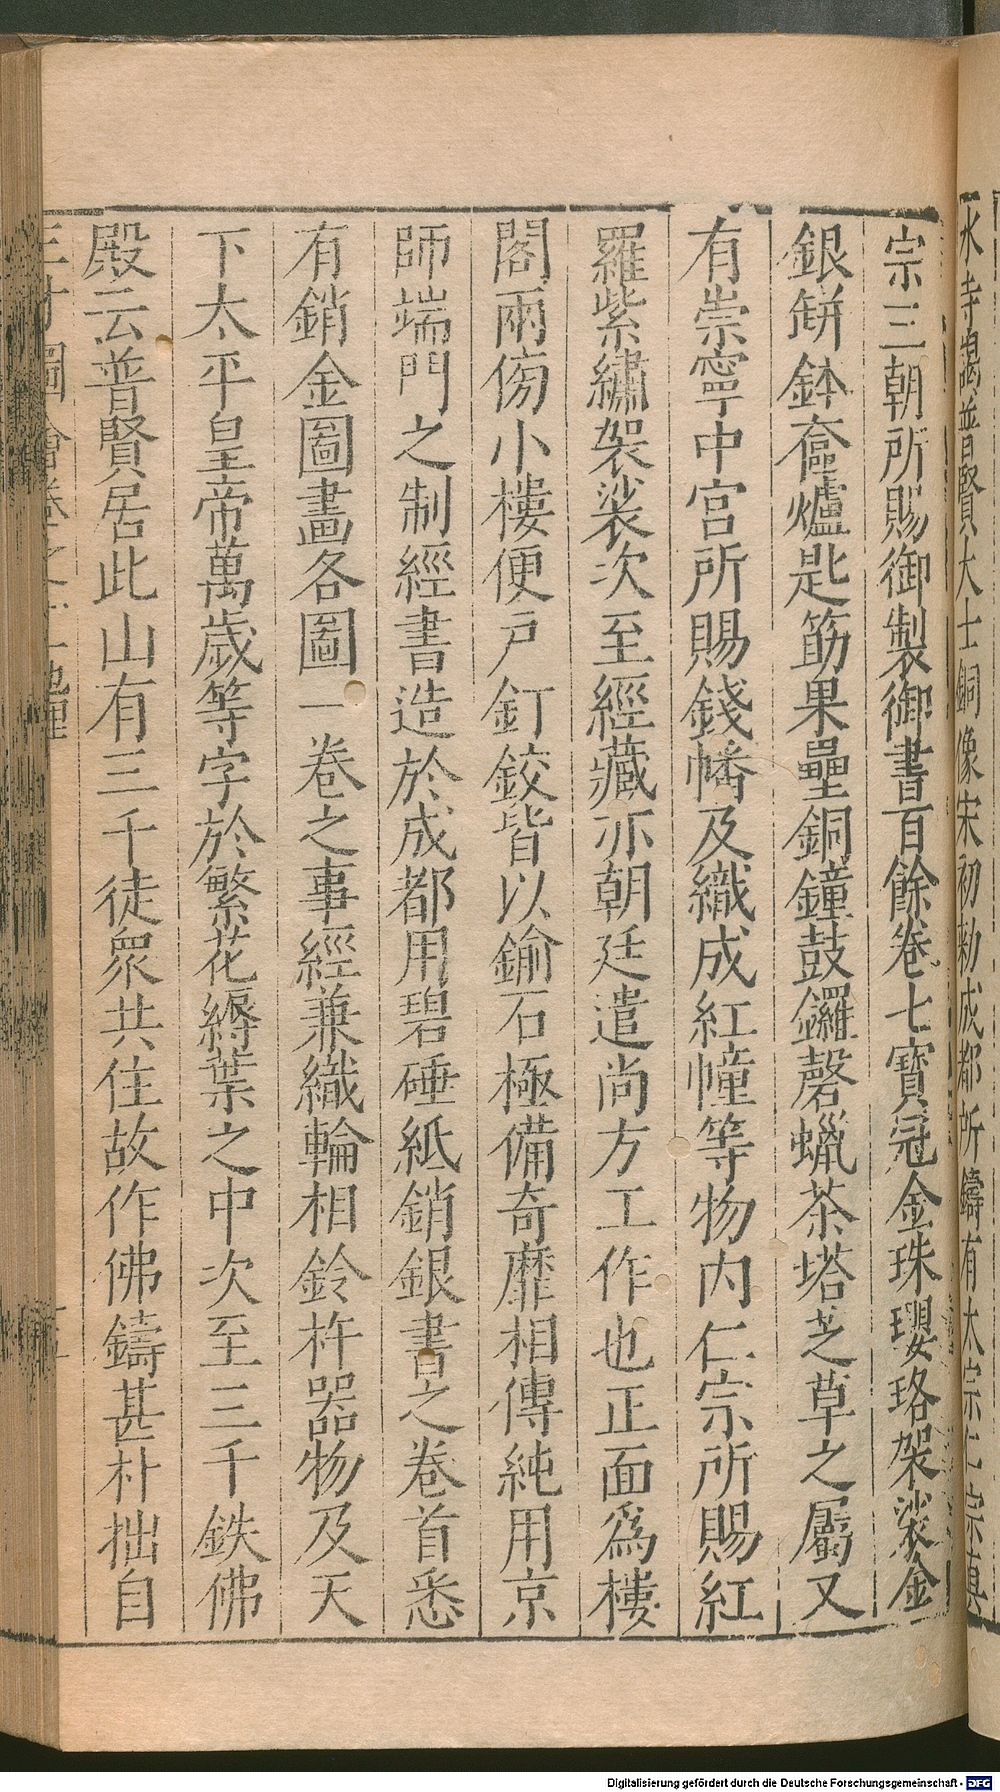 水寺謁普賢大士銅像宋初勑成都所鑄有太宗仁宗真
宗三朝所賜御製御書百餘卷七寶冠金珠瓔珞袈裟金
銀缾鉢奩爐匙筯果壘銅鐘鼓鑼磬蠟茶塔芝草之屬又
有崇寧中宮所賜錢幡及織成紅幢等物内仁宗所賜紅
羅紫繡袈裟次至經藏亦朝廷遣尚方工作也正面爲樓
閣兩傍小樓便戶釘鉸皆以鍮石極備奇靡相傳純用京
師端門之制經書造於成都用碧硾紙銷銀書之卷首悉
有銷金圖畵各圖一卷之事經兼織輪相鈴杵器物及天
下太平皇帝萬歲等字於繁花縟葉之中次至三千鉄佛
殿云普賢居此山有三千徒衆共住故作佛鑄甚朴拙自
三才圖會卷之 地理
Digitalisierung gefördert durch die Deutsche Forschungsgemeinschaft - DFG